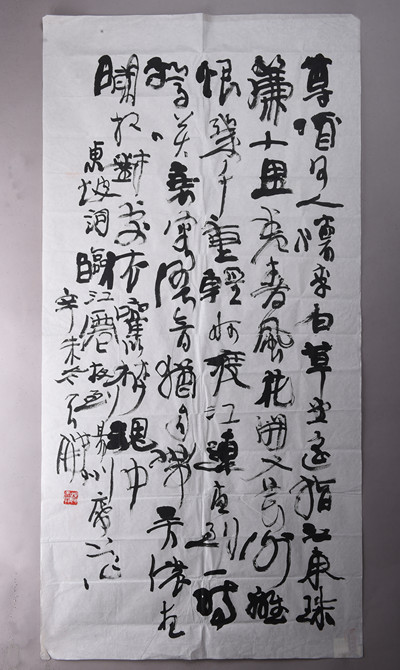 尊酒何人懷李白草堂遥指江東珠
簾十里卷春風花開又花謝離
恨幾千重輕舸渡江連夜到一時
驚笑衰容語音猶帶吴儂夜
闌對處依舊夢魂中
東坡詞臨江仙夜到揚州席上作
辛未冬